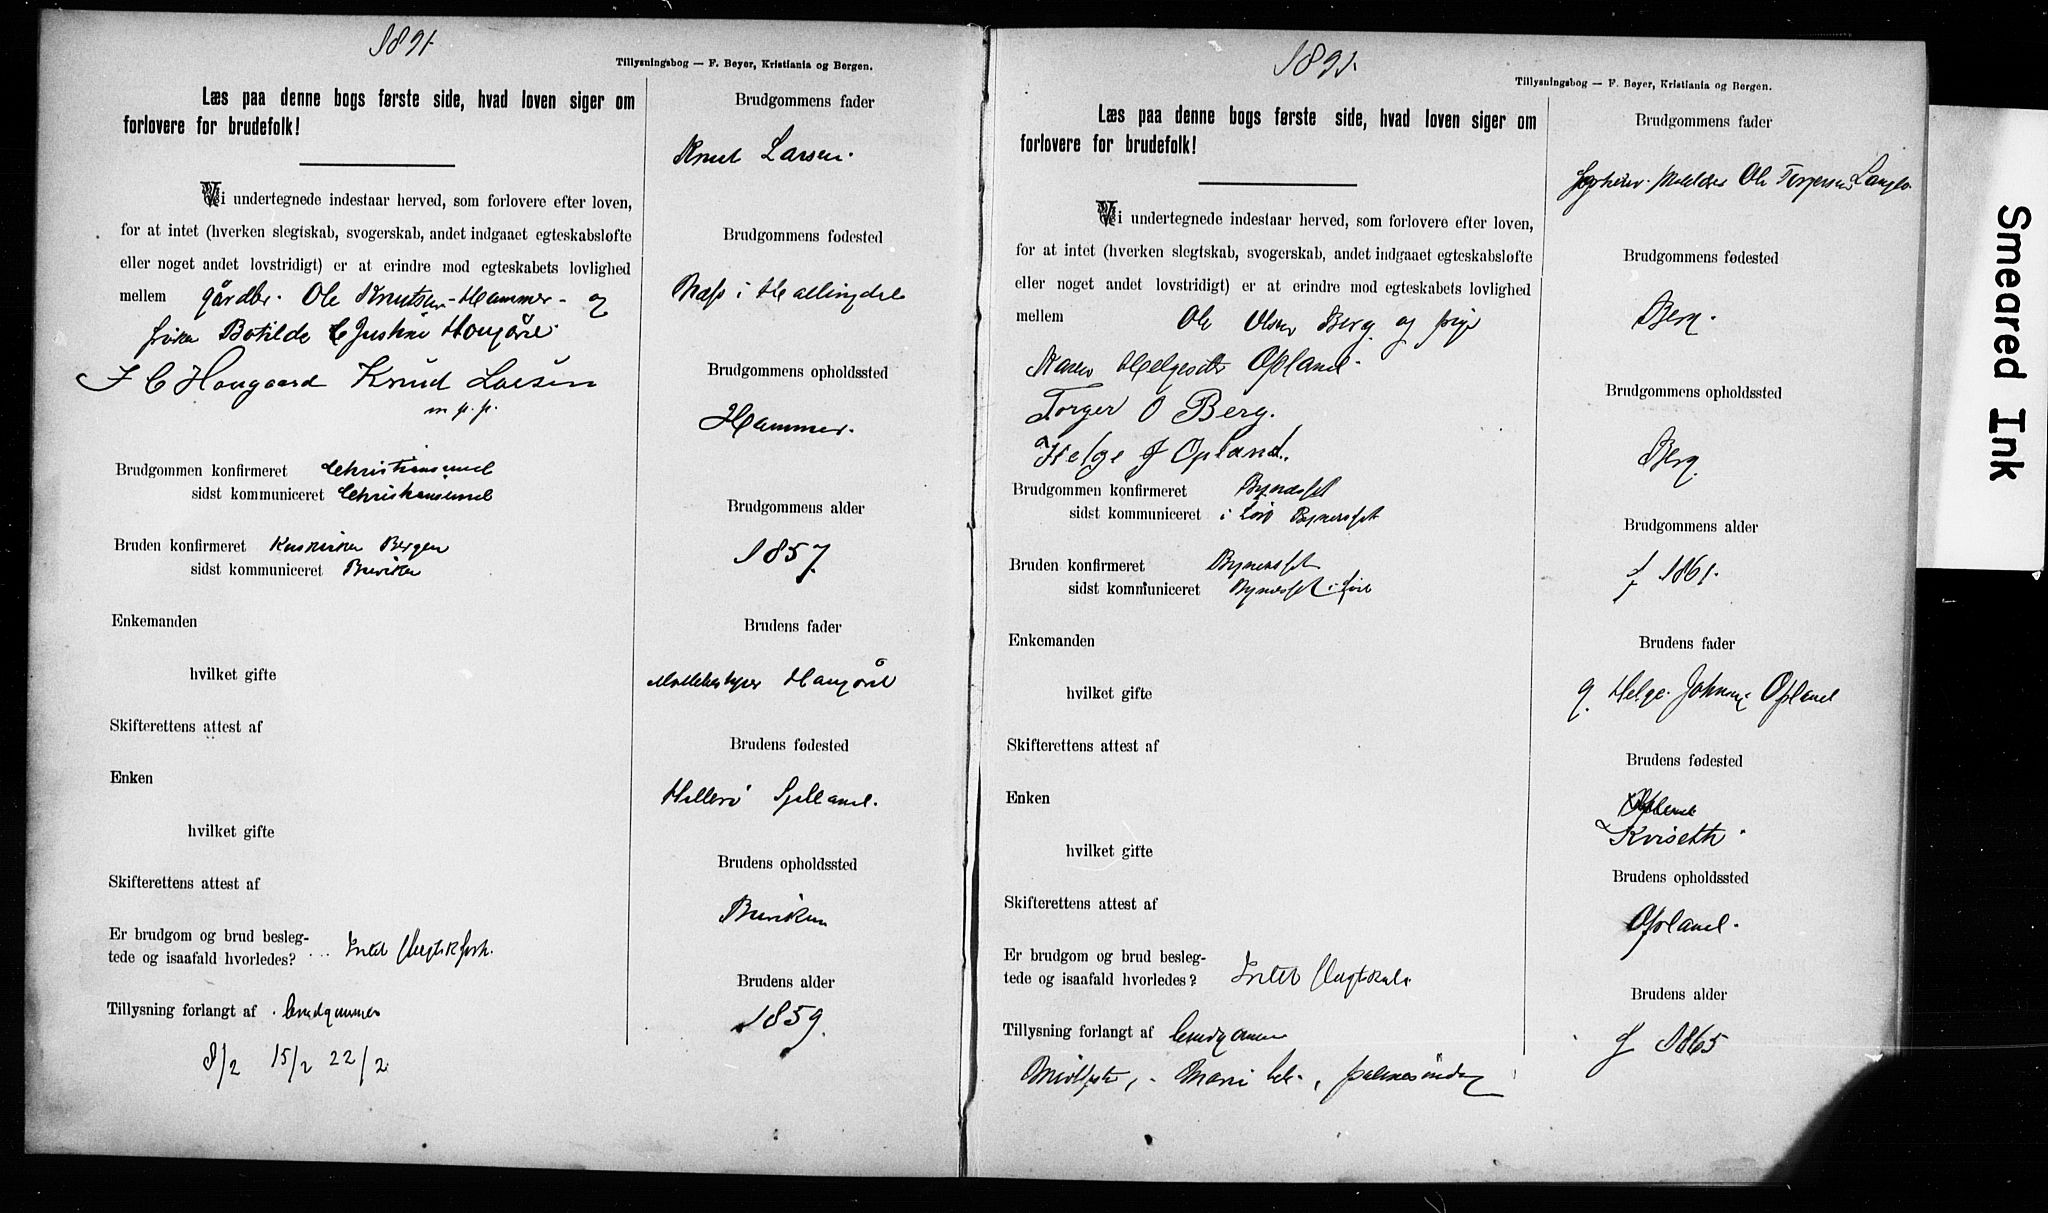 1891.
Tillysningsbog — F. Beyer, Kristiania og Bergen.
Læs paa denne bogs første side, hvad loven siger om
forlovere for brudefolk!
Vi undertegnede indestaar herved, som forlovere efter loven,
for at intet (hverken slegtskab, svogerskab, andet indgaaet egteskabsløfte
eller noget andet lovstridigt) er at erindre mod egteskabets lovlighed
mellem gårdbr. Ole Knutsen Hammer og
Botilde Justine Haugård
I C Haugaard Knud Larsen
m. p. p.
Brudgommen konfirmeret Christianssund
sidst kommuniceret Christianssund
Bruden konfirmeret Korskirken Bergen
sidst kommuniceret Buviken
Enkemanden
hvilket gifte
Skifterettens attest af
Enken
hvilket gifte
Skifterettens attest af
Er brudgom og brud besleg-
tede og isaafald hvorledes? Intet
Tillysning forlangt af brudgommen
8/2 15/2 22/2
Brudgommens fader
Knud Larsen.
Brudgommens fødested
Næss i Hallingdal
Brudgommens opholdssted
Hammer.
Brudgommens alder
1857.
Brudens fader
Haugård
Brudens fødested
Sjelland.
Brudens opholdssted
Buviken
Brudens alder
1859.
1891.
Tillysningsbog — F. Beyer, Kristiania og Bergen.
Læs paa denne bogs første side, hvad loven siger om
forlovere for brudefolk!
Vi undertegnede indestaar herved, som forlovere efter loven,
for at intet (hverken slegtskab, svogerskab, andet indgaaet egteskabsløfte
eller noget andet lovstridigt) er at erindre mod egteskabets lovlighed
mellem Ole Olsen Berg og pige
Karen Helgesdtr Opland.
Torger O Berg.
Helge J Opland.
Brudgommen konfirmeret Bynesset
sidst kommuniceret i Bynesset
Bruden konfirmeret Bynesset
sidst kommuniceret Bynesset i
Enkemanden
hvilket gifte
Skifterettens attest af
Enken
hvilket gifte
Skifterettens attest af
Er brudgom og brud besleg-
tede og isaafald hvorledes? Intet Slegtskab
Tillysning forlangt af brudgommen
Midfaste, Marie beb., palmesøndag
Brudgommens fader
Ole Torgersen
Brudgommens fødested
Berg.
Brudgommens opholdssted
Berg
Brudgommens alder
f 1861.
Brudens fader
g. Helge Johnsen Opland
Brudens fødested
Kviseth
Brudens opholdssted
Opland.
Brudens alder
f 1865
Smeared Ink